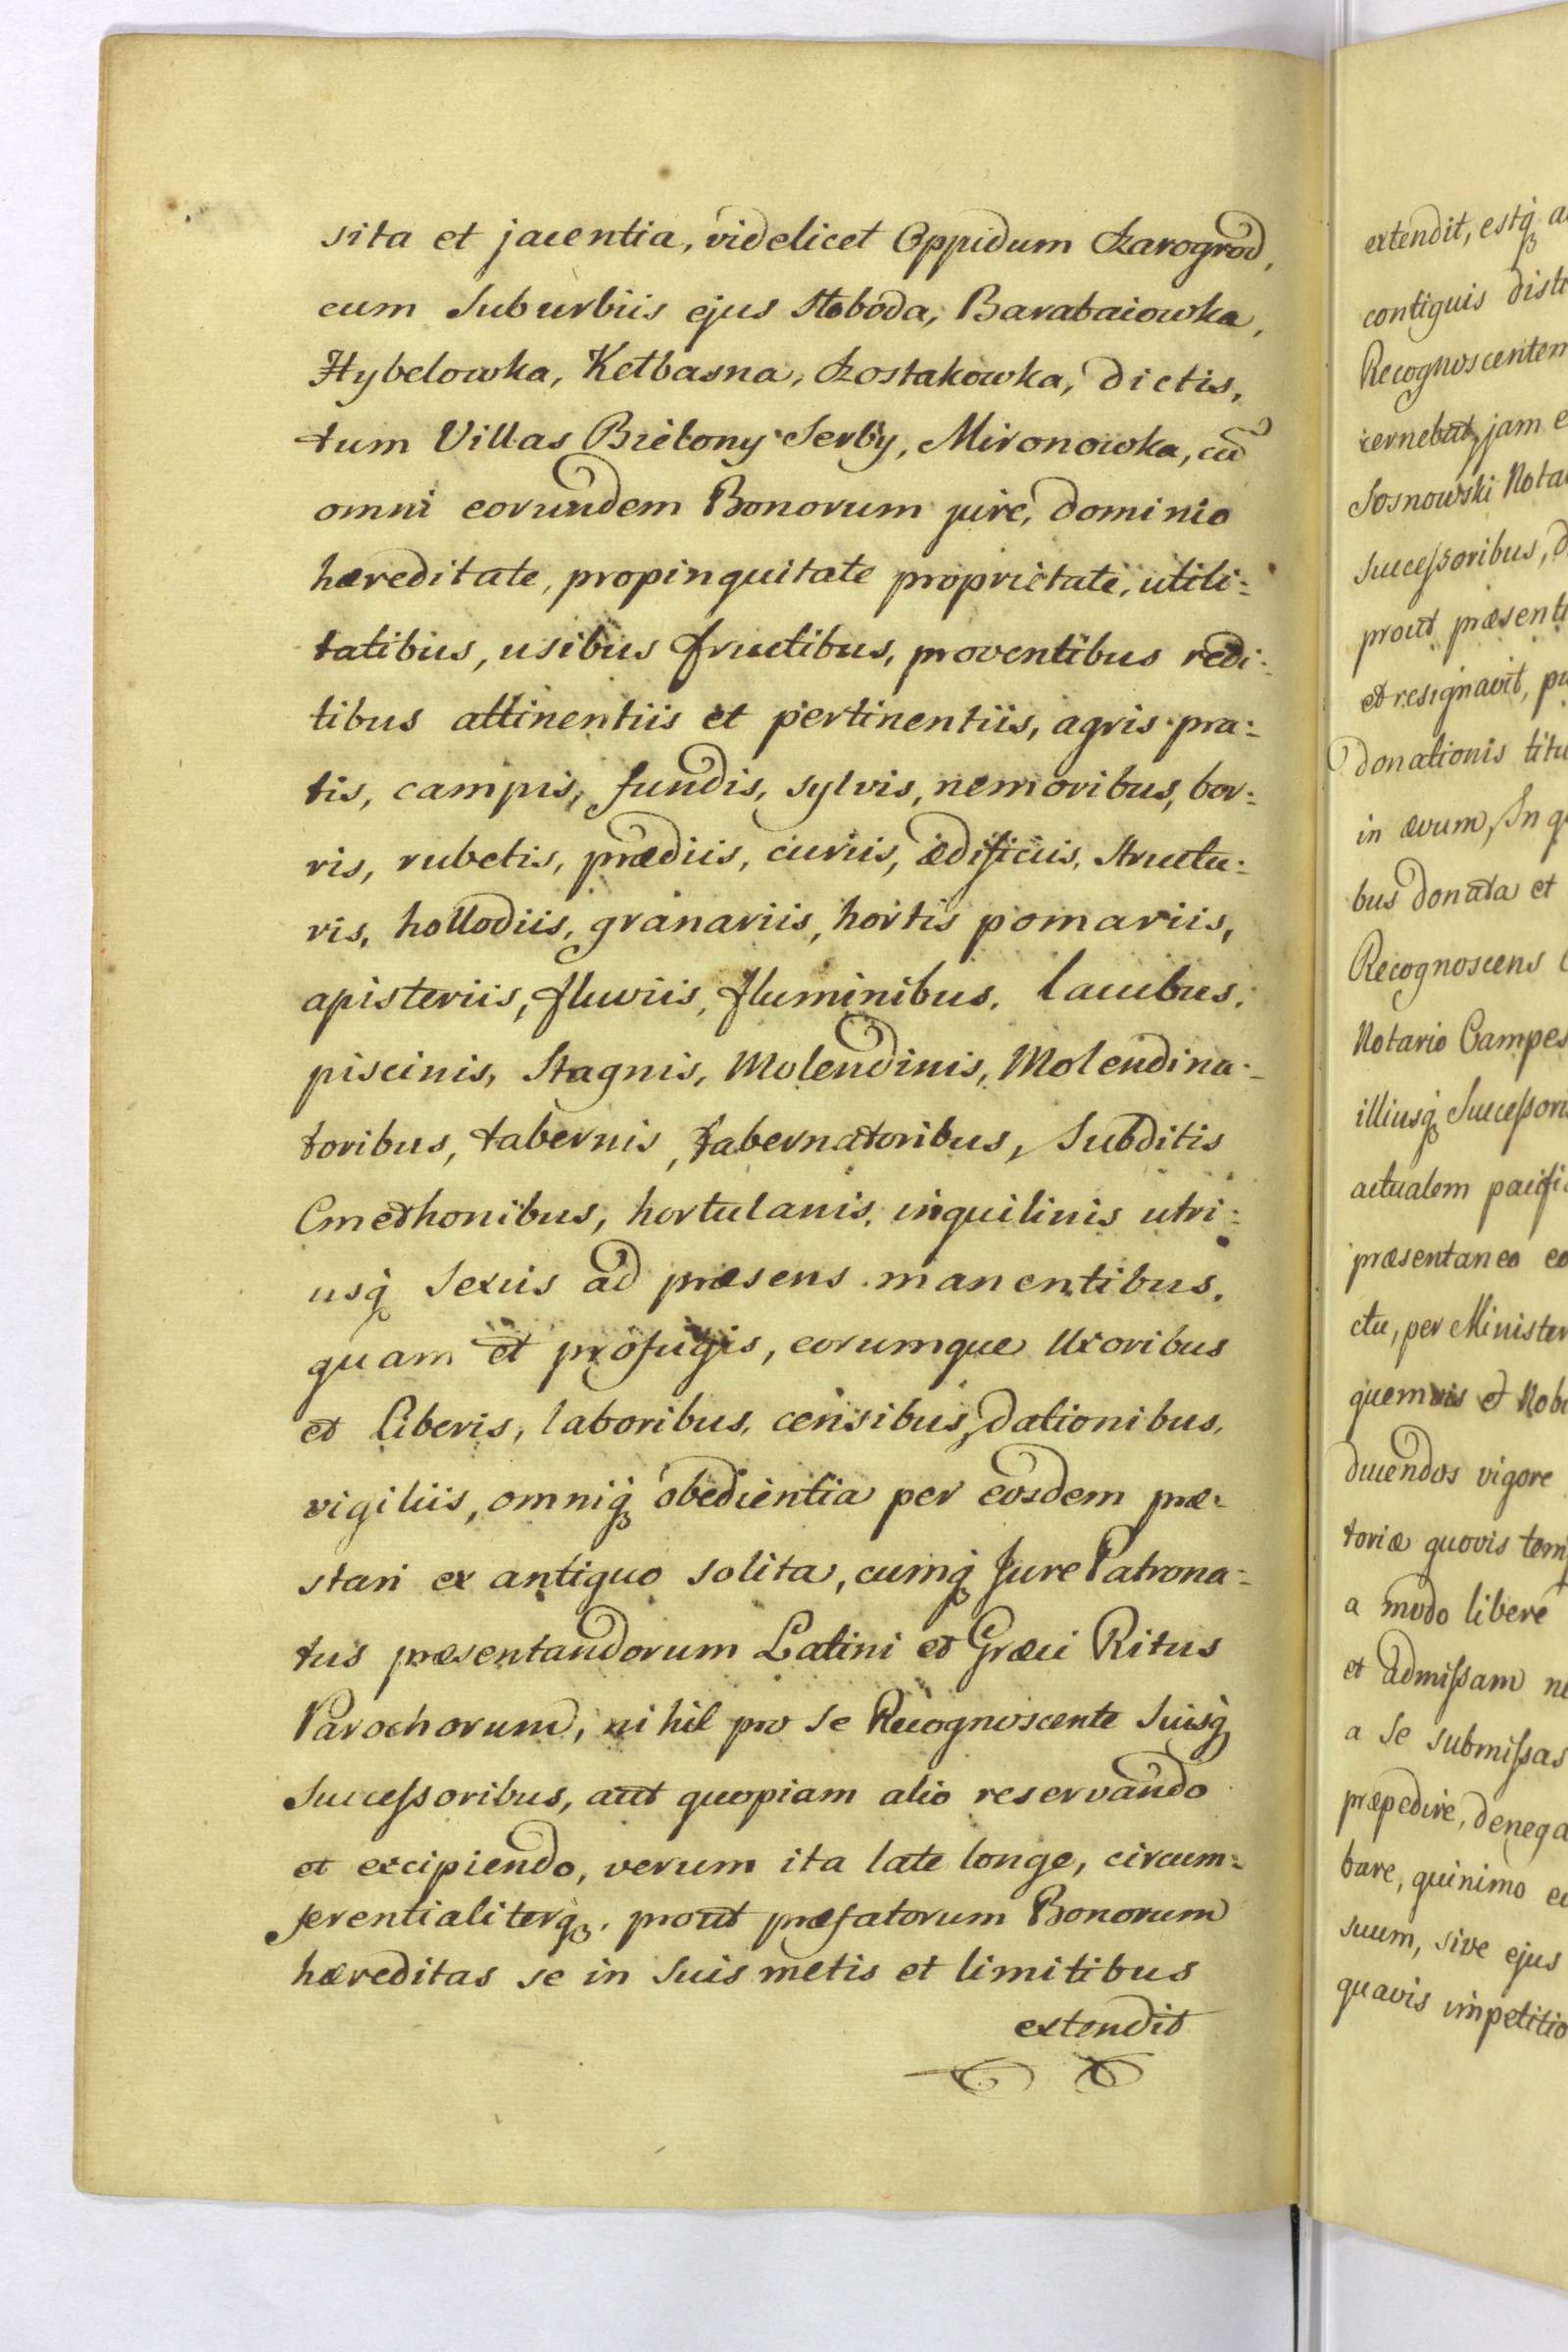 sita et jacentia, videlicet Oppidum Czarogrod,
cum Suburbiis ejus Stoboda, Barabaiowka,
Hybelowka, Ketbasna, Czostakowka, dictis,
tum Villas Bielony Serby, Mironowka, cū
omni eorundem Bonorum jure, dominio
hæreditate, propinquitate proprietate, utili:
tatibus, usibus fructibus, proventibus redi:
tibus attinentiis et pertinentiis, agris pra:
tis, campis, fundis, sylvis, nemoribus, bor:
ris, rubetis, prædiis, curiis, ædificiis, structu:
ris, hollodiis, granariis, hortis pomariis,
apisteriis, fluviis, fluminibus, lacubus,
piscinis, Stagnis, Molendinis, Molendina:
toribus, tabernis, tabernatoribus, Subditis
Cmethonibus, hortulanis, inquilinis utri:
usq; Sexus ad præsens manentibus,
quam et profugis, eorumque Uxoribus
et liberis, laboribus, censibus, dationibus,
vigiliis, omniq; obedientia per eosdem præ:
stari ex antiquo solita, cumq; Jure Patrona:
tus præsentandorum Latini et Græci Ritus
Parochorum, nihil pro se Recognoscente Suisq;
Successoribus, aut quopiam alio reservando
et excipiendo, verum ita late longe, circum:
ferentialiterq;, prout præfatorum Bonorum
hæreditas se in Suis metis et limitibus
extendit
extendit, estq; a
contiguis dist
Recognoscentem
cernebat, jam e
Sosnowski Nota
Successoribus, d
prout præsenti
et resignavit, pu
donationis titu
in ævum, In q
bus donata et
Recognoscens
Notario Campes
illiusq; Successori
actualem pacifi
præsentaneo eo
ctu, per Minister
quemvis et Nobi
ducendos vigore
toriæ quovis temp
a modo libere
et admissam ne
a Se submissas
præpedire, denega
bare, quinimo e
suum, sive ejus
quavis impetitio